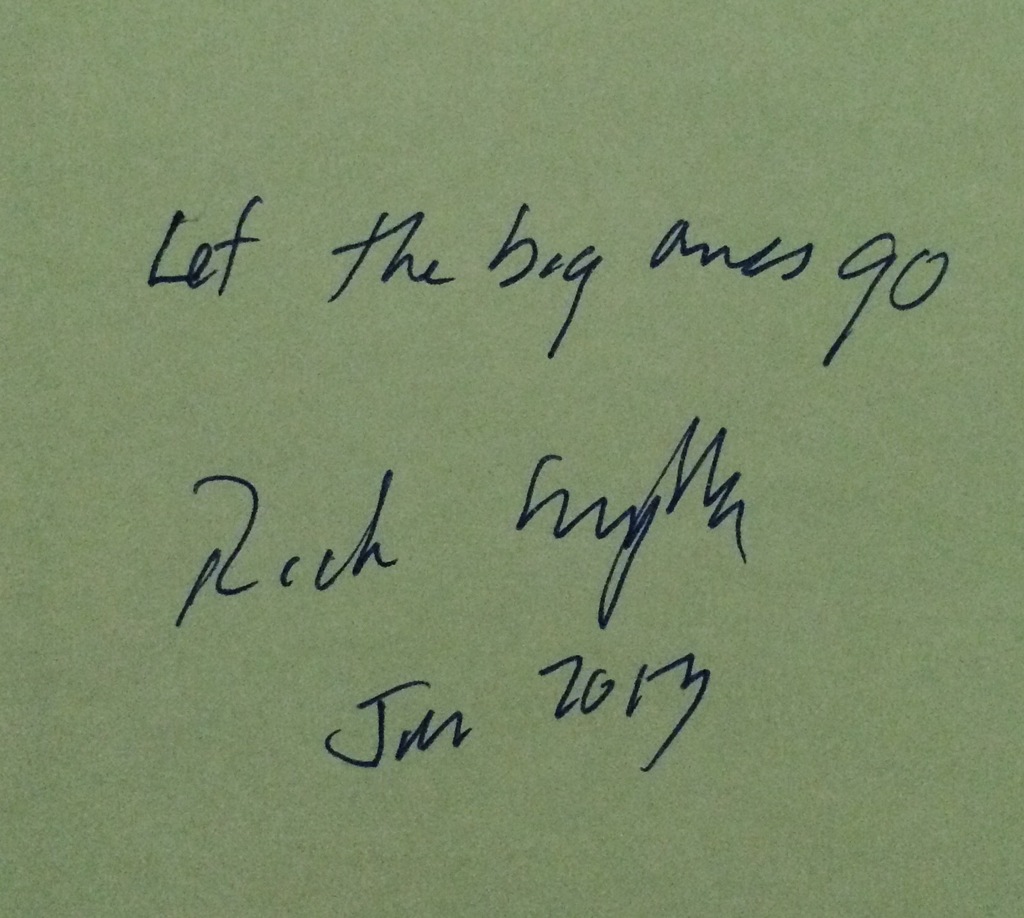 Let the big ones go
Rich
Jan 2013